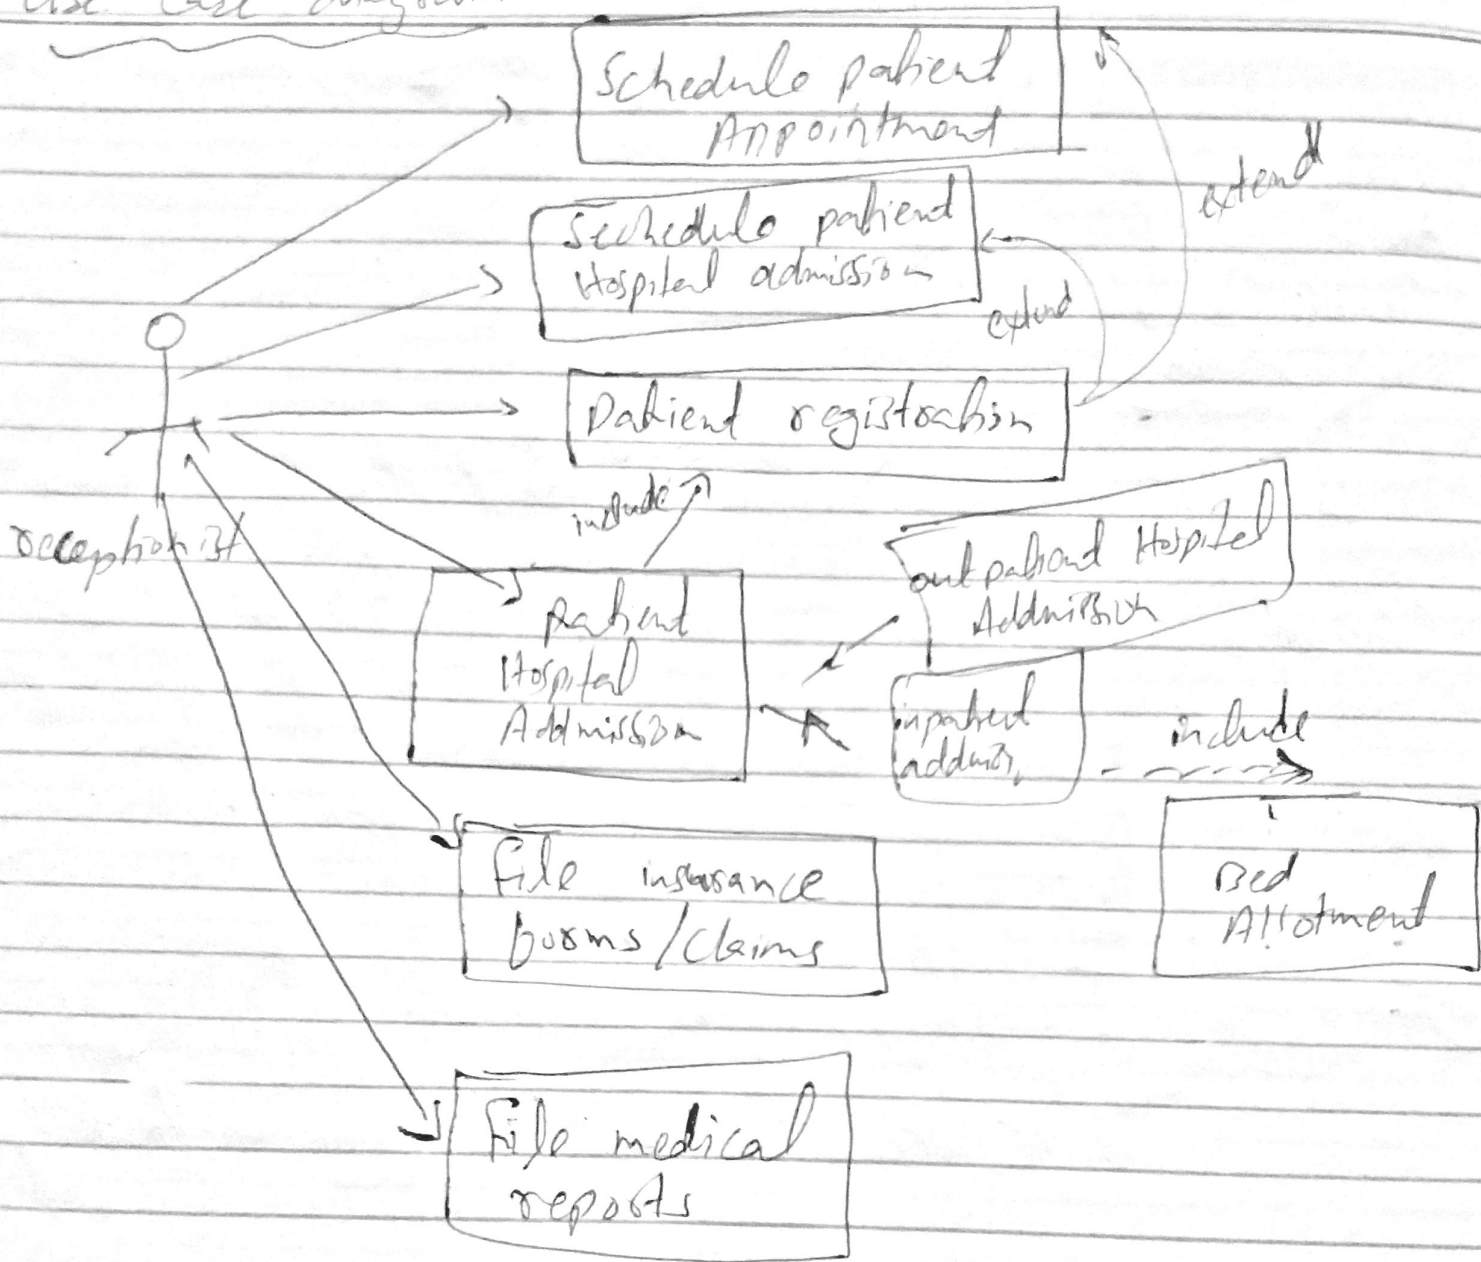 use case diagram
Schedule patient
Appointment
extend
Sechedule patient
Hospital admission
extend
Patient registration
include
receptionist
outpatient Hospital
Addmission
patient
Hospital
Addmission
inpatient
addmis,
include
Bed
Allotment
File insurance
forms/claims
File medical
reports